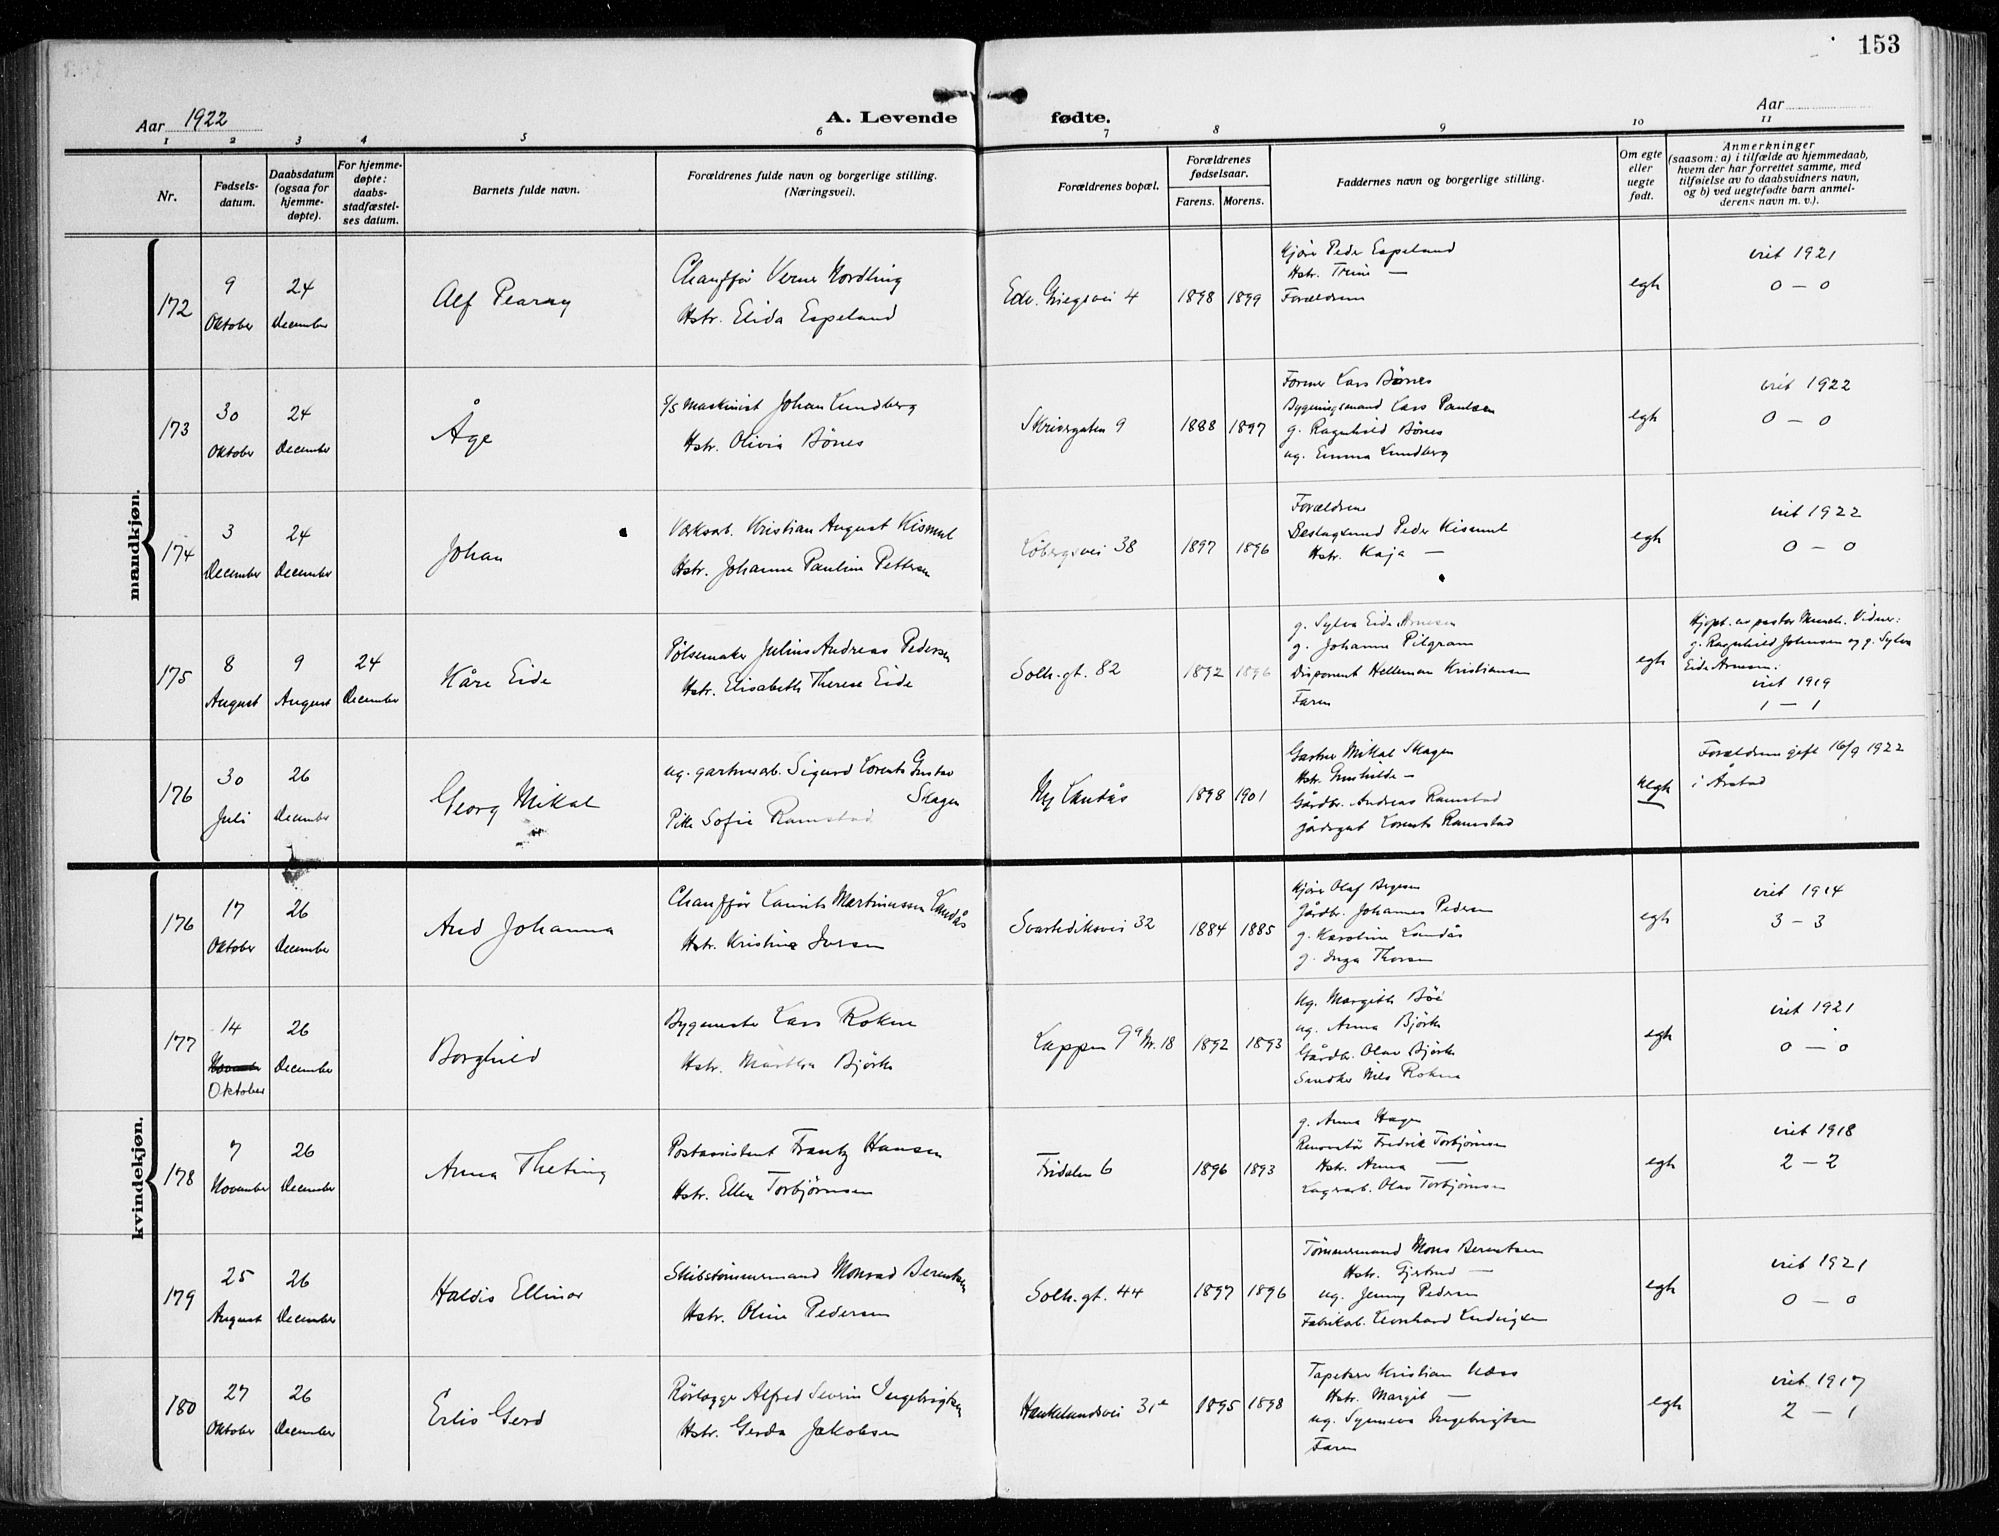 153
Aar 1922
A. Levende fødte.
Aar
1 2 3 4 5 6 7 8 9 10 11
Nr.
Fødsels-
datum.
Daabsdatum
(ogsaa for
hjemme-
døpte).
For hjemme-
døpte:
daabs-
stadfæstel-
ses datum.
Barnets fulde navn.
Forældrenes fulde navn og borgerlige stilling.
(Næringsvei).
Forældrenes bopæl.
Forældrenes
fødselsaar.
Farens. Morens.
Faddernes navn og borgerlige stilling.
Om egte
eller
uegte
født.
Anmerkninger
(saasom: a) i tilfælde av hjemmedaab,
hvem der har forrettet samme, med
tilføielse av to daabsvidners navn,
og b) ved uegtefødte barn anmel-
derens navn m. v.).
mandkjøn.
172
9
Oktober
24
December
Alf
Chauffør Verner Nordling
Hstr. Elida Espeland
Edv. Griegsvei 4
1898 1899
Kjører Peder Espeland
Hstr. Trine —
Forældrene
egte
viet 1921
0 — 0
173
30
Oktober
24
December
Åge
S/S Maskinist Johan Lundberg
Hstr. Olivia Bønes
Skriverg​aten 9
1888 1897
Former Lars Bønes
Bygningsmand Lars Paulsen
g. Ragnhild Bønes
ug. Emma Lundberg
egte
viet 1922
0 — 0
174
3
December
24
December
Johan
Verksarb. Kristian August Kismul
Hstr. Johanne Pauline Pettersen
Løbergsvei 38
1897 1896
Forældrene
Peder Kismul
Hstr. Kaja —
egte
viet 1922
0 — 0
175
8
August
9
August
24
December
Kåre Eide
Pølsemaker Julius Andreas Pedersen
Hstr. Elisabeth Therese Eide
Solh.gt. 82
1892 1896
g. Sylva Eide Arnesen
g. Johanne Pilgram
Disponent Helleman Kristiansen
Faren
egte
Hjdøpt. av pastor Munch. Vidner:
g. Ragnhild Johnsen og g. Sylva
Eide Arnesen.
viet 1919
1 — 1
176
30
Juli
26
December
Georg Mikal
ug. gartnerarb. Sigurd Lorents Gustav
Skagen
Pike Sofie Ramstad
Ny Landås
1898 1901
Gartner Mikal Skagen
Hstr. Gunhilde —
Gårdbr. Andreas Ramstad
Lorents Ramstad
uegte
Forældrene gift 16/9 1922
i Årstad
kvindekjøn.
176
17
Oktober
26
December
Aud Johanna
Chauffør Laurits Martinussen Landås
Hstr. Kristine Iversen
Svartediksvei 32
1884 1885
Kjører Olaf Bergesen
Gårdbr. Johannes Pedersen
g. Karoline Landås
g. Inga Thorsen
egte
viet 1914
3 — 3
177
14
November
Oktober
26
December
Borghild
Bygmester Lars Rokne
Hstr. Martha Bjørke
Lappen 9a Nr. 18
1892 1893
ug. Margith Bøe
ug. Anna Bjørke
Gårdbr. Olav Bjørke
Snedker Nils Rokne
egte
viet 1921
0 — 0
178
7
November
26
December
Anna Theting
Postassistent Frantz Hansen
Hstr. Ellen Torbjørnsen
Fridalen 6
1896 1893
g. Anna Hagen
Renovatør Fredrik Torbjørnsen
Hstr. Anna —
Lagerarb. Olav Torbjørnsen
egte
viet 1918
2 — 2
179
25
August
26
December
Haldis Ellinor
Skibstømmermand Monrad Berentsen
Hstr. Oline Pedersen
Solh.gt. 44
1897 1896
Tømmermand Mons Berentsen
Hstr. Gjertrud —
ug. Jenny Pedersen
Fabrikarb. Leonhard Ludvigsen
egte
viet 1921
0 — 0
180
27
Oktober
26
December
Erlis Gerd
Rørlægger Alfred Severin Ingebrigtsen
Hstr. Gerda Jakobsen
Haukelandsvei 31e
1895 1898
Tapetserer Kristian Næss
Hstr. Margit —
ug. Synneva Ingebrigtsen
Faren
egte
viet 1917
2 — 1